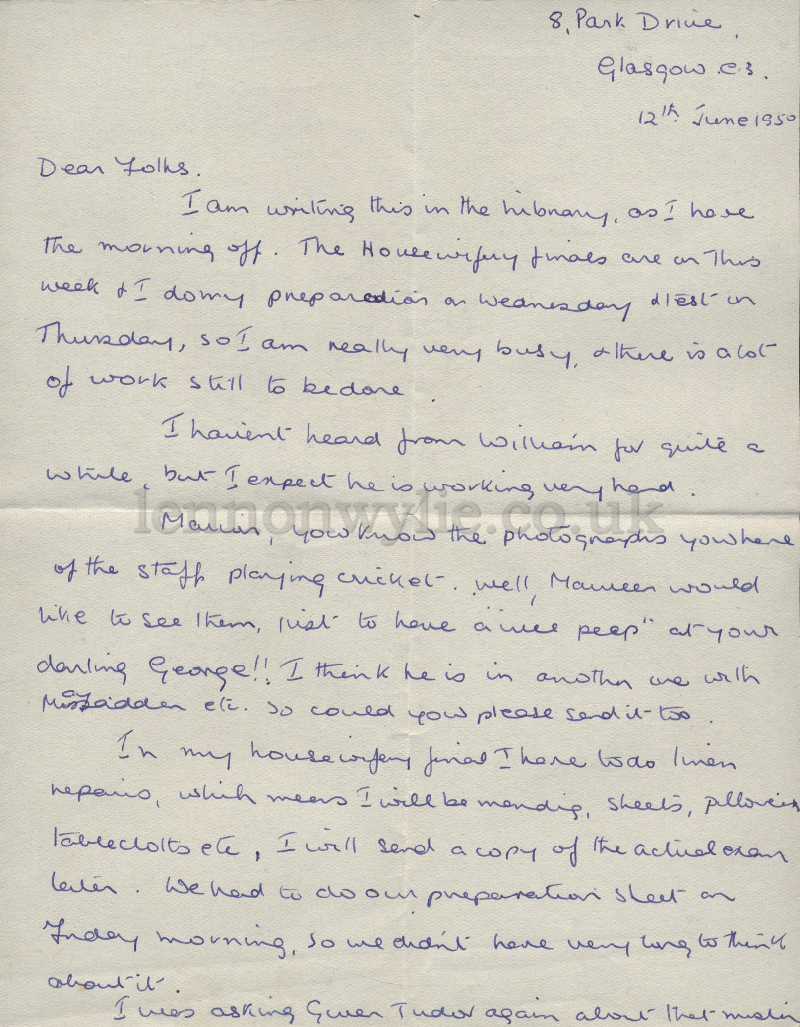 8, Park Drive,
Glasgow. C.3.
12th June 1950
Dear Folks.
I am writing this in the library, as I have
the morning off. The Housewifery finals are on this
week & I do my preparation on Wednesday & test on
Thursday, so I am really very busy, & there is a lot
of work still to be done.
I haven't heard from William for quite a
while, but I expect he is working very hard.
lennonwylie.co.uk
you know the photographs you have
of the staff playing cricket. Well, Maureen would
like to see them, just to have "a wee peep" at your
darling George!! I think he is in another one with
etc. So could you please send it too.
In my housewifery final I have to do linen
repairs, which means I will be mending, sheets,
tablecloths etc, I will send a copy of the actual exam
later. We had to do our preparation sheet on
Friday morning, so we didn't have very long to think
about it.
I was asking Gwen Tudor again about that muslin